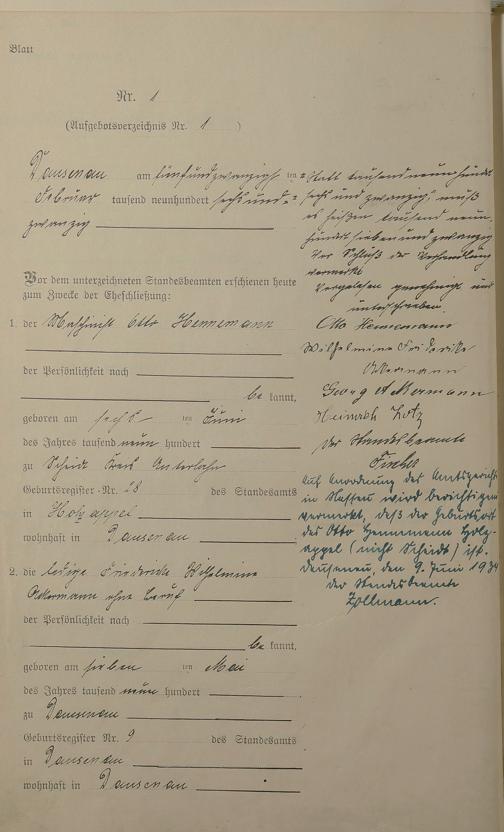 Blatt
Nr. 1
(Aufgebotsverzeichnis Nr. 1 )
Dausenau am fünfundzwanzigsten
Februar tausend neunhundert sechsund-
zwanzig
Vor dem unterzeichneten Standesbeamten erschienen heute
zum Zwecke der Eheschließung:
1. der Maschinist Otto Hennemann
der Persönlichkeit nach
be kannt,
geboren am sechs ten Juni
des Jahres tausend neun hundert
zu Scheidt Kreis Unterlahn
Geburtsregister Nr. 28 des Standesamts
in Holzappel
wohnhaft in Dausenau
2. die ledige Friedericke Wilhelmine
Ackermann ohne Beruf
der Persönlichkeit nach
be kannt,
geboren am sieben ten Mai
des Jahres tausend neun hundert
zu Dausenau
Geburtsregister Nr. 9 des Standesamts
in Dausenau
wohnhaft in Dausenau
Statt tausend neunhundert
sechs und zwanzig, muß
es heißen tausend neun
hundert sieben und zwanzig
Vor Schluß der Verhandlung
vermerkt
Vorgelesen genehmigt und
unterschrieben.
Otto Hennemann
Wilhelmine Friederike
Ackermann
Georg Ackermann
Heinrich Lotz
Der Standesbeamte
Auf Anordnung des Amtsgerichts
in Nassau wird berichtigend
vermerkt, daß der Geburtsort
des Otto Hennemann Holz-
appel (nicht Scheidt) ist.
Dausenau, den 9. Juni 1934
der Standesbeamte
Zollmann.